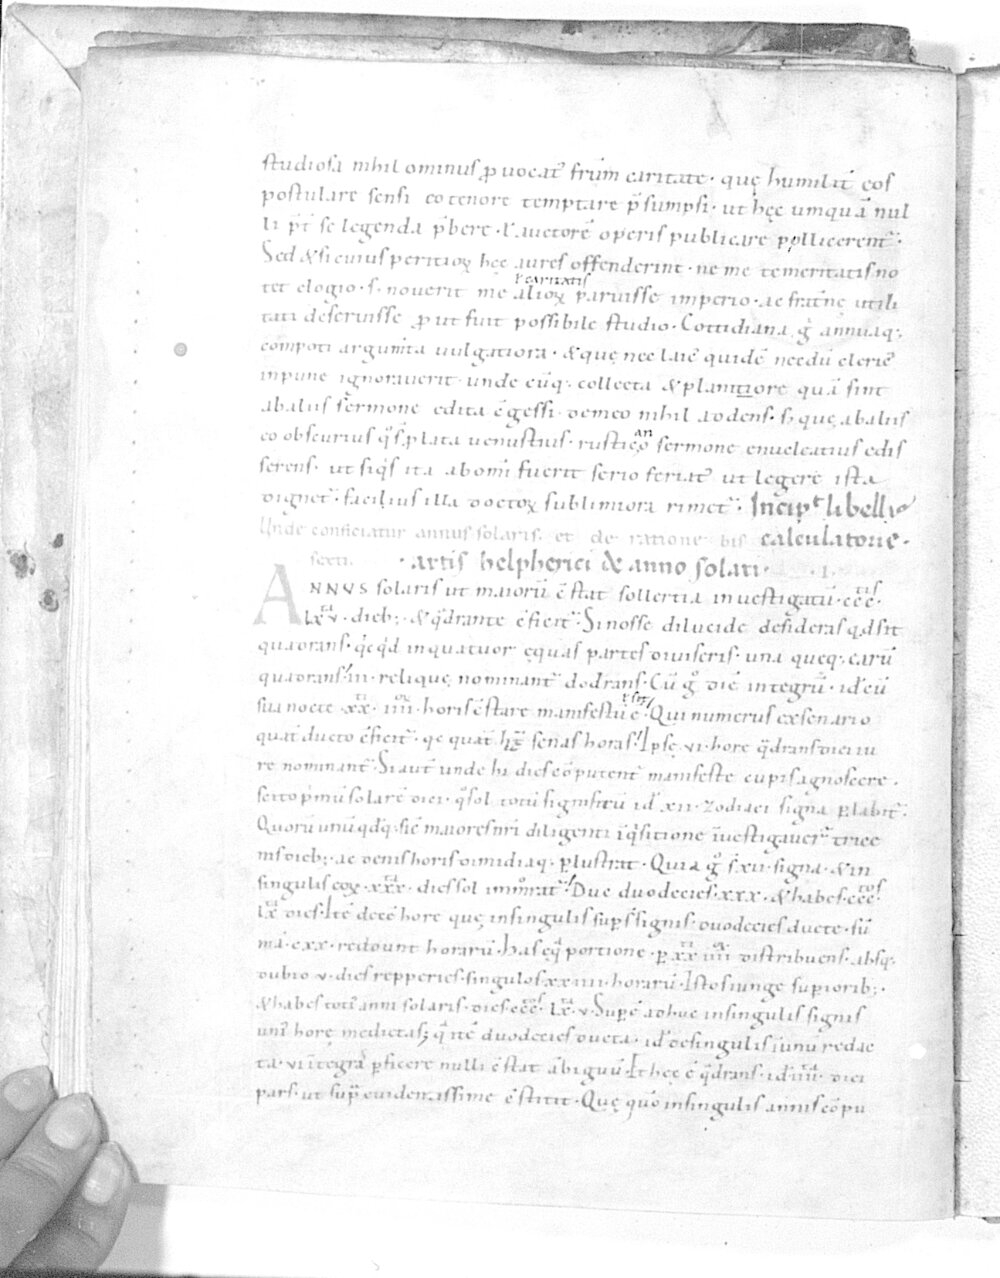 studiosa nihil ominus ꝓ uocat̄ fr̄um caritate · quę humilit̄ eos
postulare sensi eo tenore temptare p̄sumpsi · ut hęc umquā nul
li p̄t̄ se legenda p̄bere · ł auctorē operis publicare pollicerent̄ ·
Sed & si cuius peritioꝝ hęc aures offenderint · ne me temeritatis no
ł caritatis
tet elogio · s · nouerit me alioꝝ paruisse imperio · ac frat̄nę utili
tati deseruisse ꝓut fuit possibile studio · Cottidiana g̊ annuaq;
compoti argum̄ta uulgatiora · & quę nec laic̄ quidē necdū cleric̄
inpune ignorauerit unde cūq; collecta & planiore quā sint
ab aliis sermone edita c̄gessi · de meo nihil addens · s; quę ab aliis
eo obscurius q̊ s̄ plata uenustius · rusticano sermone enucleatius edis
serens · ut siq̊s ita ab om̄i fuerit serio feriat̄ ut legere ista
dignet̄ · facilius illa doctoꝝ sublimiora rimet̄ · Incip̄t libelli
Unde conficiatur annus solaris et de ratione bis calculatorie ·
sexti · artis helpherici de anno solari · I ·
ANNVS solaris ut maiorū c̄stat sollertia inuestigatū · ccc^tis ·
lx^ta v · dieb; · & q̊drante c̄ficit̄ · Si nosse dilucide desideras q̊d sit
quadrans · q̊cq̊d in quatuor ęquas partes diuiseris · una queq; earū
quadrans · iii · relique nominant̄ dodrans · Cū g̊ diē integrū · id ̄ cū
sua nocte · xx^ti · iiii^or · horis c̄stare manifestū ē · Qui numerus ex senario
quat̄ ducto c̄ficit̄ · senas horas · Ipsę · vi · hore q̊drans diei iu
re nominant̄ · Si aut̄ unde hi dies cōputent̄ manifeste cupis agnoscere ·
scito p̄mū solarē dici · q̊ sol totū signiferū id ̄ xii · zodiaci signa ꝑlabit̄ ·
Quorū unūq̊dq; sic̄ maiores nr̄i diligenti īq̊sitione īuestigauer̄ trice
nis dieb; · ac denis horis dimidiaq; ꝑlustrat · Quia g̊ s̄ xii · signa · & in
singulis eoꝝ · xxx^ta · dies sol immorat̄ · Duc duodecies · xxx · & habes · ccc^tos
lx^ta dies · Itē decē hore quę in singulis sup̄s̄ signis · duodecies ducte · sū
mā · cxx · reddunt horarū · Has eq̊ portione · p xx^ti iiii^or distribuens · absq;
dubio v · dies repperies · singulos · xx iiii · horarū · Istos iunge supiorib; ·
& habes toti anni solaris · dies · ccc^tos · lx^ta · v · Supē adhuc in singulis signis
uni hore medietas; q̊ itē duodecies ducta · id ̄ de singulis ī unū redac
ta · vi ītegrā ꝑficere nulli c̄stat ābiguū · Et hęc ē q̊drans · id ̄ iiii^ta · diei
pars · ut sup̄ euidentissime c̄stitit · Quę quō in singulis annis cōpu